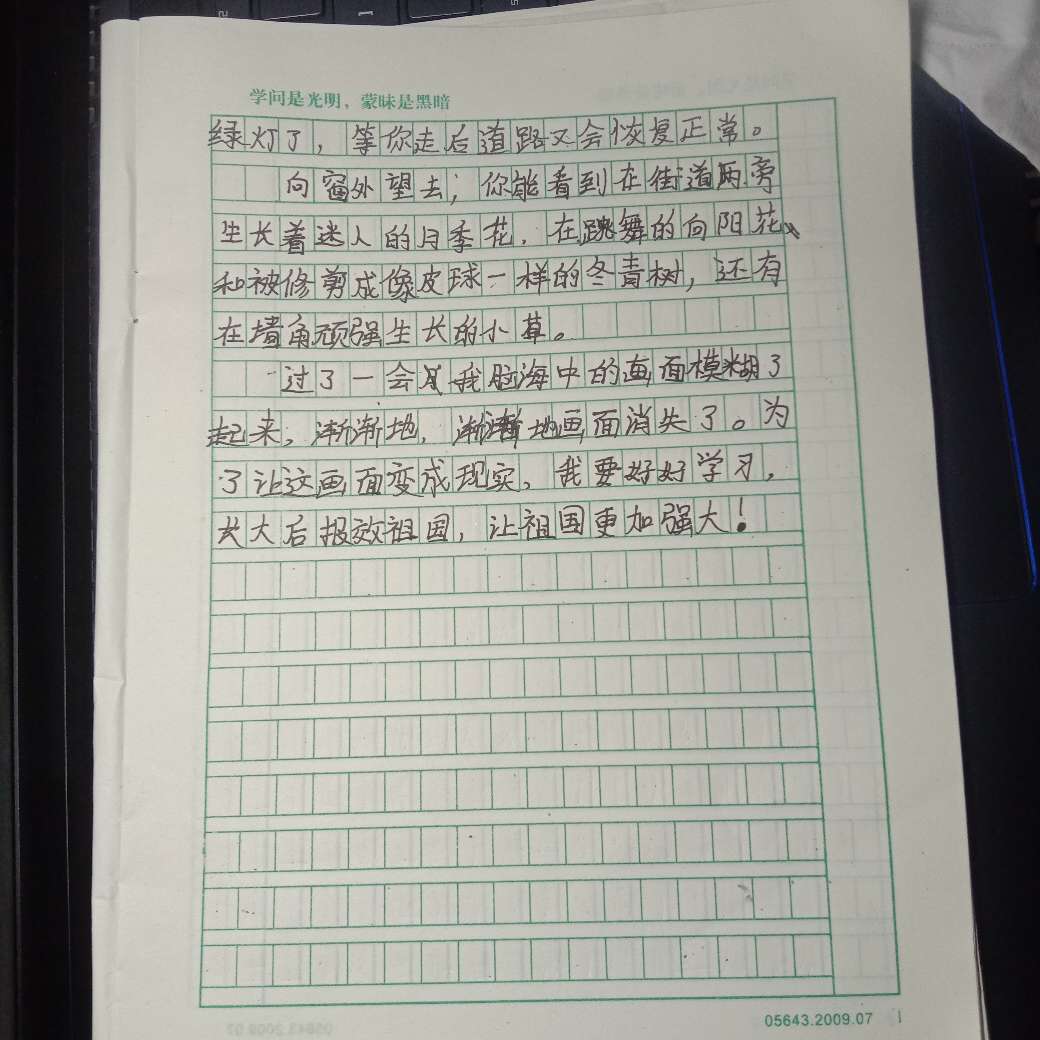 学问是光明，蒙昧是黑暗
绿灯了，等你走后道路又会恢复正常。
向窗外望去，你能看到在街道两旁
生长着迷人的月季花，在跳舞的向阳花、
和被修剪成像皮球一样的冬青树，还有
在墙角顽强生长的小草。
过了一会，我脑海中的画面模糊了
起来，渐渐地，渐渐地画面消失了。为
了让这画面变成现实，我要好好学习，
长大后报效祖国，让祖国更加强大！
05643.2009.07